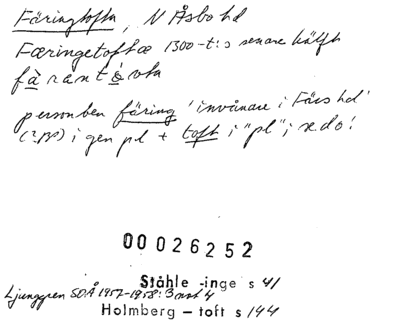 Färingtofta, N Åsbo hd
Færingetoftæ 1300-t:s senare hälft
fàrant
personben färing 'invånare i Färs hd'
(?) i gen pl + toft i "pl"; se do!
00026252
Ståhle -inge s 41
Ljunggren SOÅ 1957-1958: 3 not 4
Holmberg - toft s 144